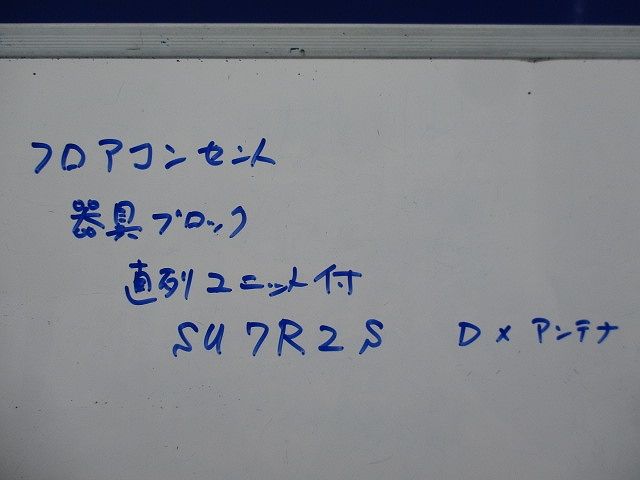 フロアコンセント
器具ブロック
直列ユニット付
SU7R2S DXアンテナ